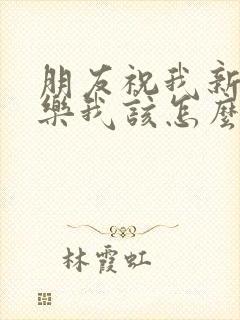 朋友祝我新
樂我該怎麼
林霞虹